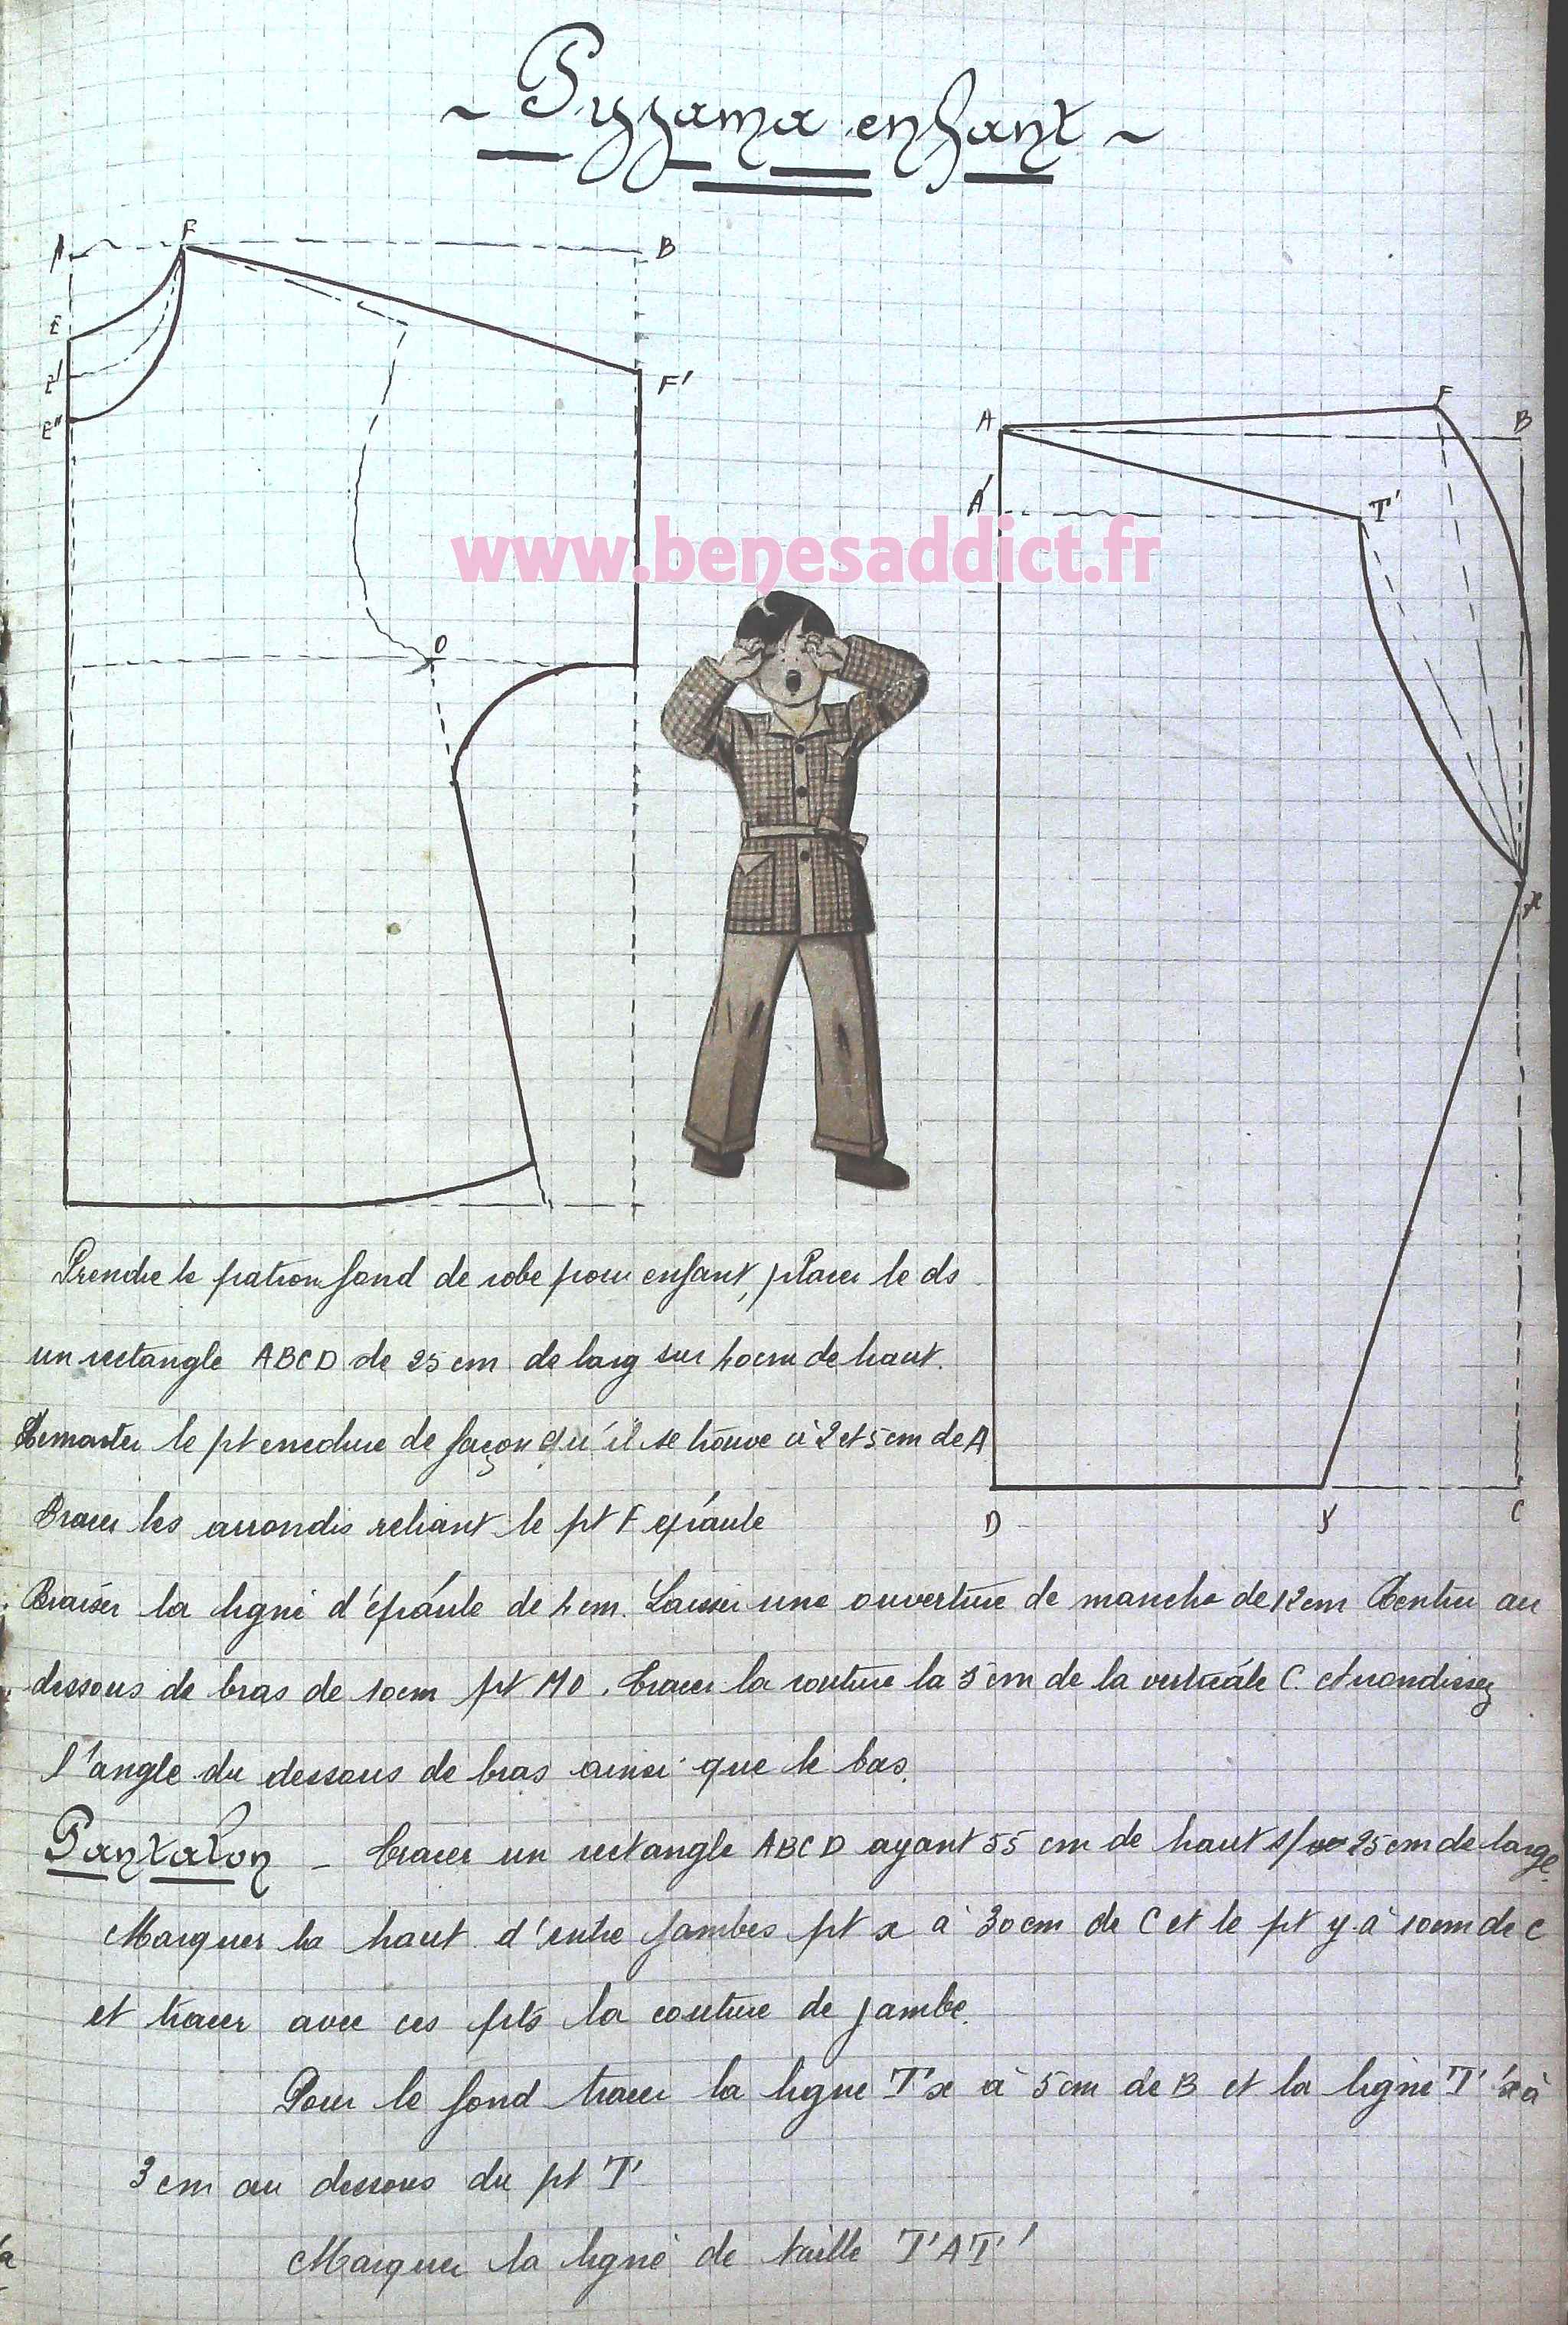 ~ Pyjama enfant ~
A F B
E
E'
E"
F'
O
A F B
A' T'
www.benesaddict.fr
x
D y C
Prendre le patron fond de robe pour enfant, placer le ds
un rectangle ABCD de 25 cm de larg sur 40cm de haut.
Remonter le pt encolure de façon qu'il se trouve à 2 et 5 cm de A
Tracer les arrondis reliant le pt F épaule
Biaiser la ligne d'épaule de 4 cm. Laisser une ouverture de manche de 12cm Rentrer au
dessous de bras de 10cm pt MO. Tracer la couture la 5 cm de la verticale C. Arrondissez
l'angle du dessous de bras ainsi que le bas.
Pantalon - Tracer un rectangle ABCD ayant 55 cm de haut s/ 25cm de large.
Marquer la haut. d'entre jambes pt x à 30cm de C et le pt y à 10cm de c
et tracer avec ces pts la couture de jambe.
Pour le fond tracer la ligne Tx à 5cm de B et la ligne T'x à
3 cm au dessous du pt T
Marquer la ligne de taille TAT'